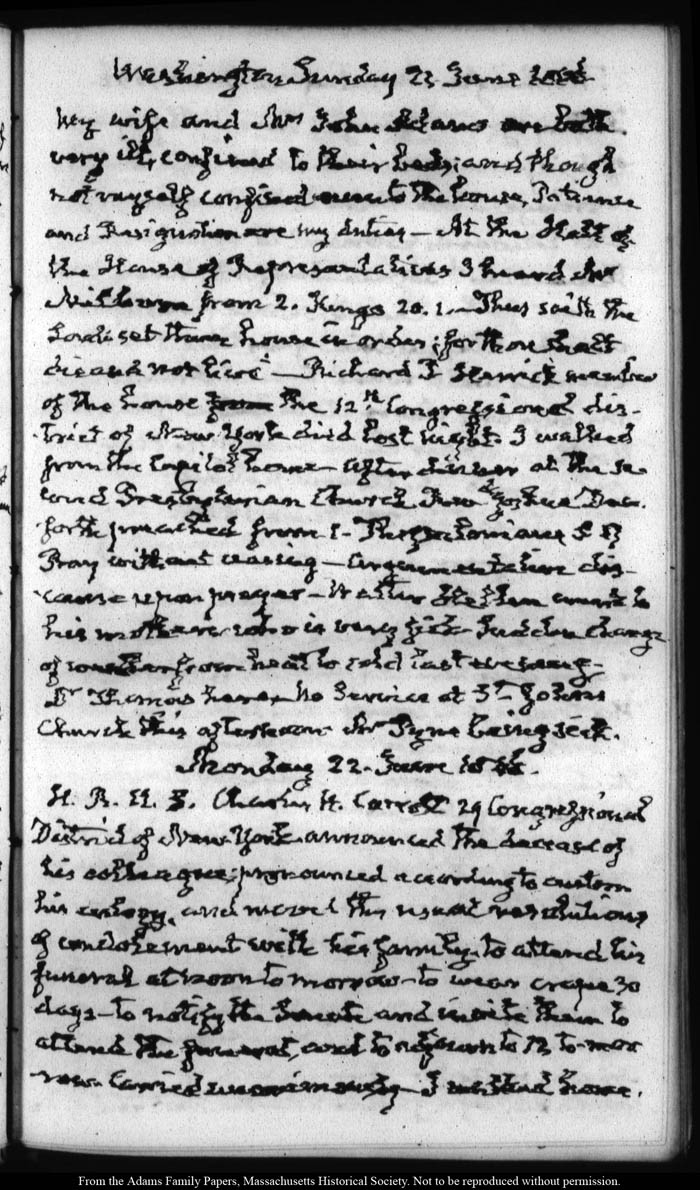 Washington Sunday 21 June 1846
My wife and Mrs John Adams are both
very ill, confined to their beds; and though
not myself confined even to the house, Patience
and Resignation are my duties — At the Hall of
the House of Representatives I heard Mr
Milburn from 2. Kings 20. 1. Thus saith the
Lord; set thine house in order; for thou shalt
die and not live — Richard P Herrick member
of the house from the 12th Congressional dis-
trict of New York died last night. I walked
from the Capitol home — After dinner at the Se-
cond Presbyterian Church Rev
preached from 1. Thessalonians 5 17
Pray without ceasing — Argumentative dis-
course upon prayer — Walter Hellen came to
his mother who is very sick Sudden change
of weather from heat to cold last evening —
Dr Thomas here. No Service at St. Johns
Church this afternoon Mr Pyne being sick.
Monday 22. June 1846.
H. R. U. S. Charles H. Carroll 29 Congressional
District of New York announced the decease of
his colleague; pronounced according to custom
his eulogy, and moved the usual resolutions
of condolement with his family, to attend his
funeral at noon to morrow — to wear crape 30
days — to notify the Senate and invite them to
attend the funeral, and to adjourn to 12 to-mor
row. Carried unanimously — I walked home.
From the Adams Family Papers, Massachusetts Historical Society. Not to be reproduced without permission.